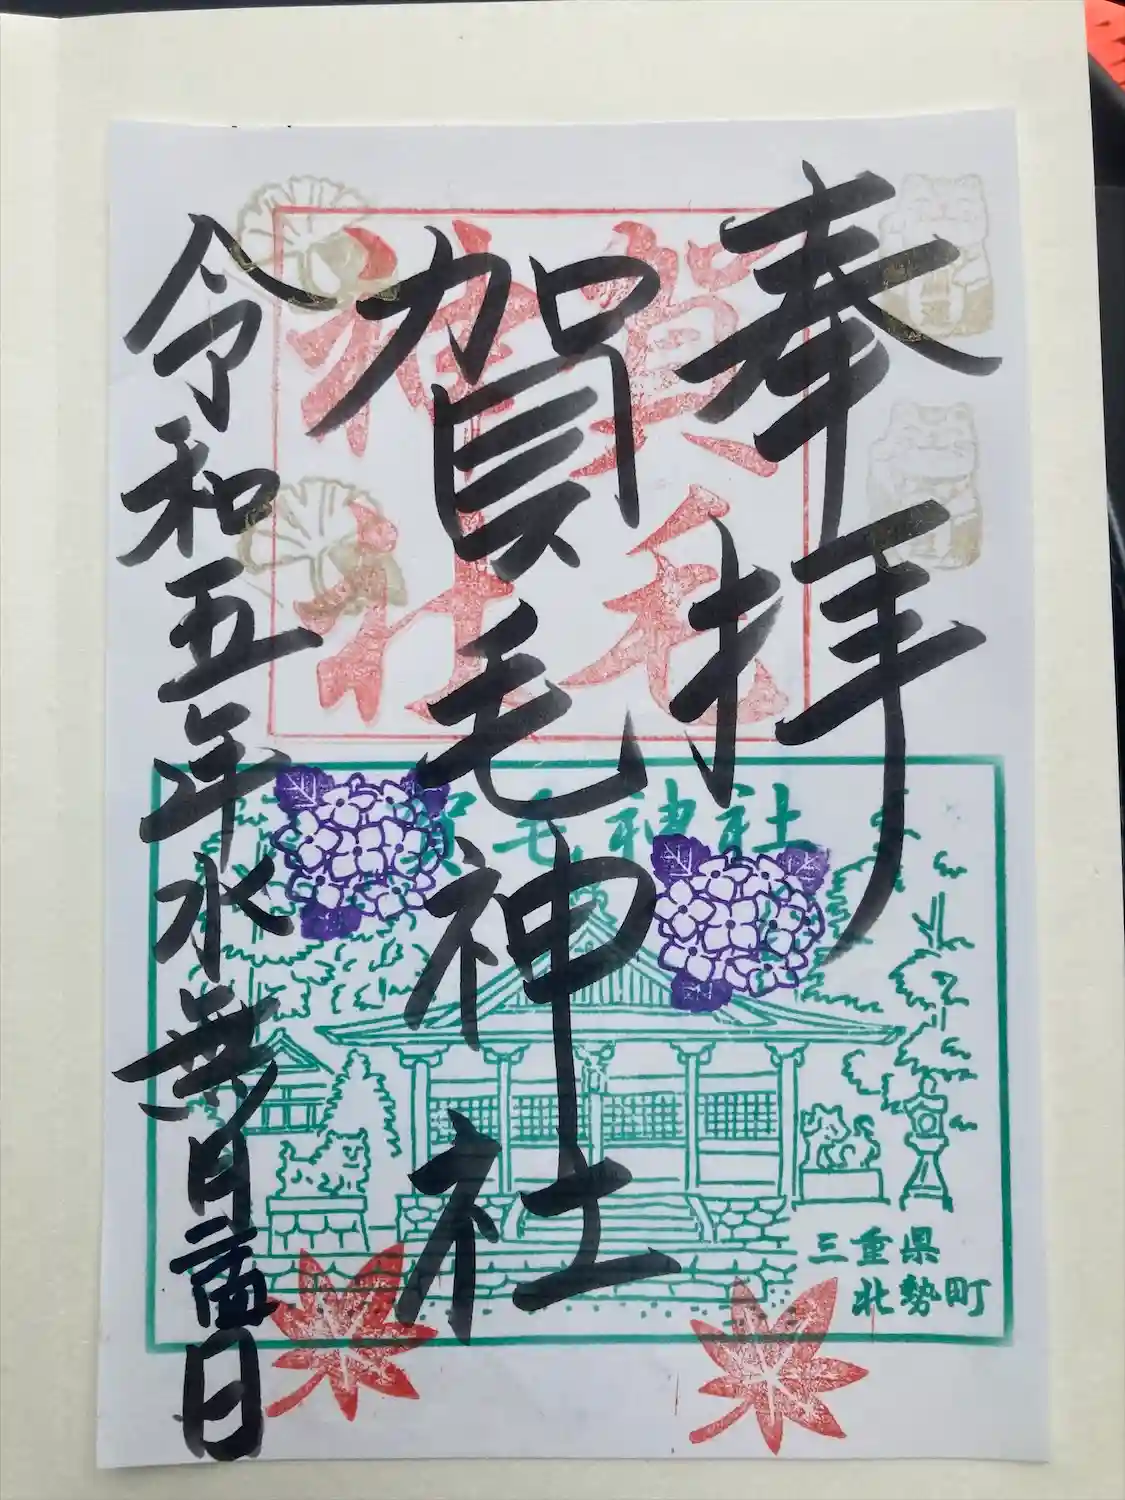 奉拝
賀毛神社
令和五年水無月日
賀毛
神社
賀毛神社
三重県
北勢町